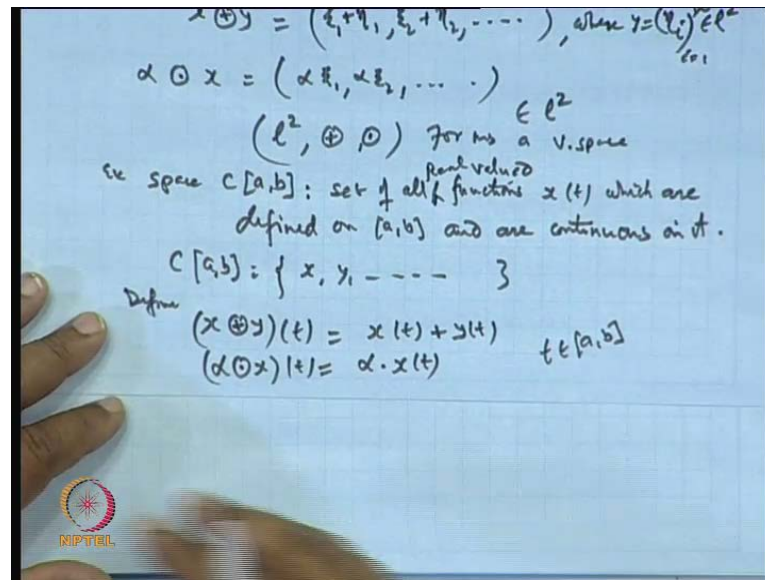 x ⊕ y = (ξ₁+η₁, ξ₂+η₂, ....), where y=(ηᵢ)^∞_{i=1} ∈ ℓ²
α ⊙ x = (αξ₁, αξ₂, ... .)
∈ ℓ²
(ℓ², ⊕, ⊙) Forms a v.space
real valued
Ex space C[a,b]: set of all functions x(t) which are
defined on [a,b] and are continuous on it.
C[a,b]: { x, y, ---- }
Define
(x ⊕ y)(t) = x(t) + y(t)
(α ⊙ x)(t) = α · x(t) t ∈ [a,b]
NPTEL